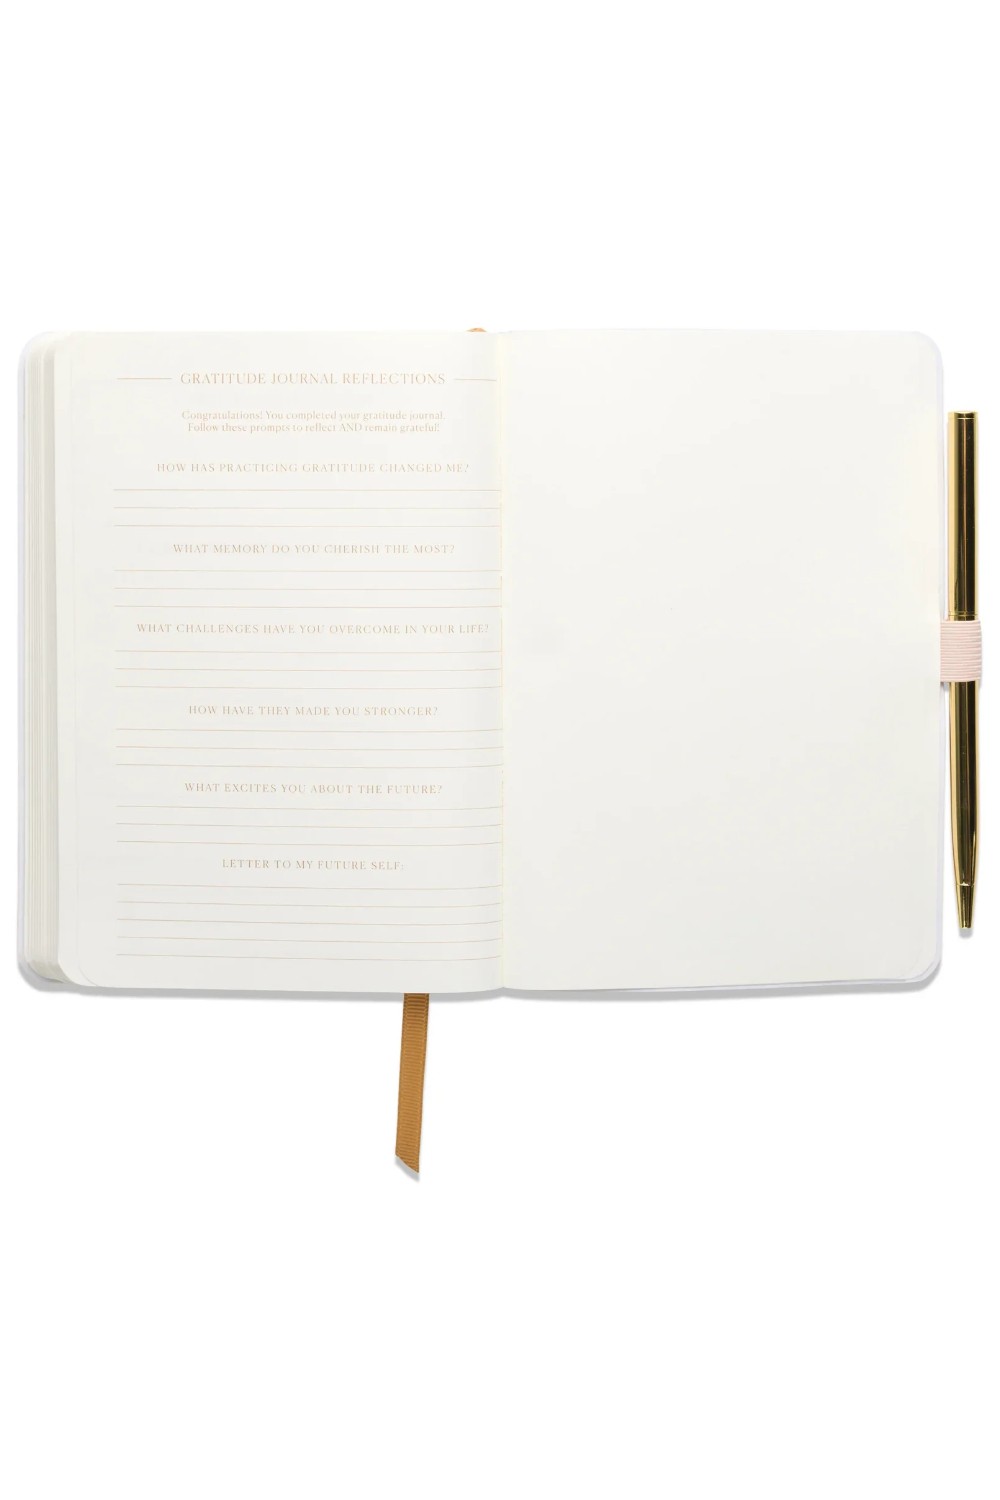 GRATITUDE JOURNAL REFLECTIONS
Congratulations! You completed your gratitude journal.
Follow these prompts to reflect AND remain grateful!
HOW HAS PRACTICING GRATITUDE CHANGED ME?
WHAT MEMORY DO YOU CHERISH THE MOST?
WHAT CHALLENGES HAVE YOU OVERCOME IN YOUR LIFE?
HOW HAVE THEY MADE YOU STRONGER?
WHAT EXCITES YOU ABOUT THE FUTURE?
LETTER TO MY FUTURE SELF: